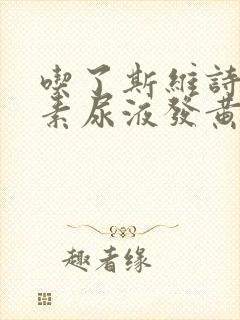 喫了斯維詩
素尿液發黃
趣者缘